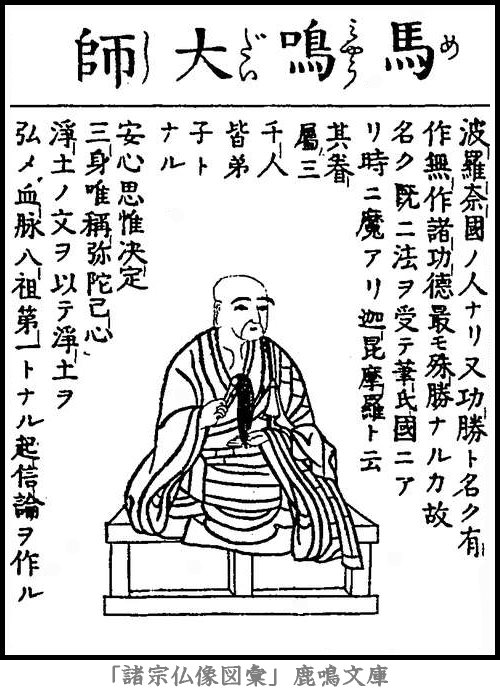 馬鳴大師
め みやう だい し
波羅奈國ノ人ナリ又功勝ト名ク有
作無作諸功德最モ殊勝ナルカ故
名ク既ニ法ヲ受テ筆氏國ニア
リ時ニ魔アリ迦毘摩羅ト云
其眷
屬三
千人
皆弟
子ト
ナル
安心思惟决定
三身唯称弥陀己心
淨土ノ文ヲ以テ淨土ヲ
弘メ血脉八祖第一トナル起信論ヲ作ル
「諸宗仏像図彙」鹿鳴文庫